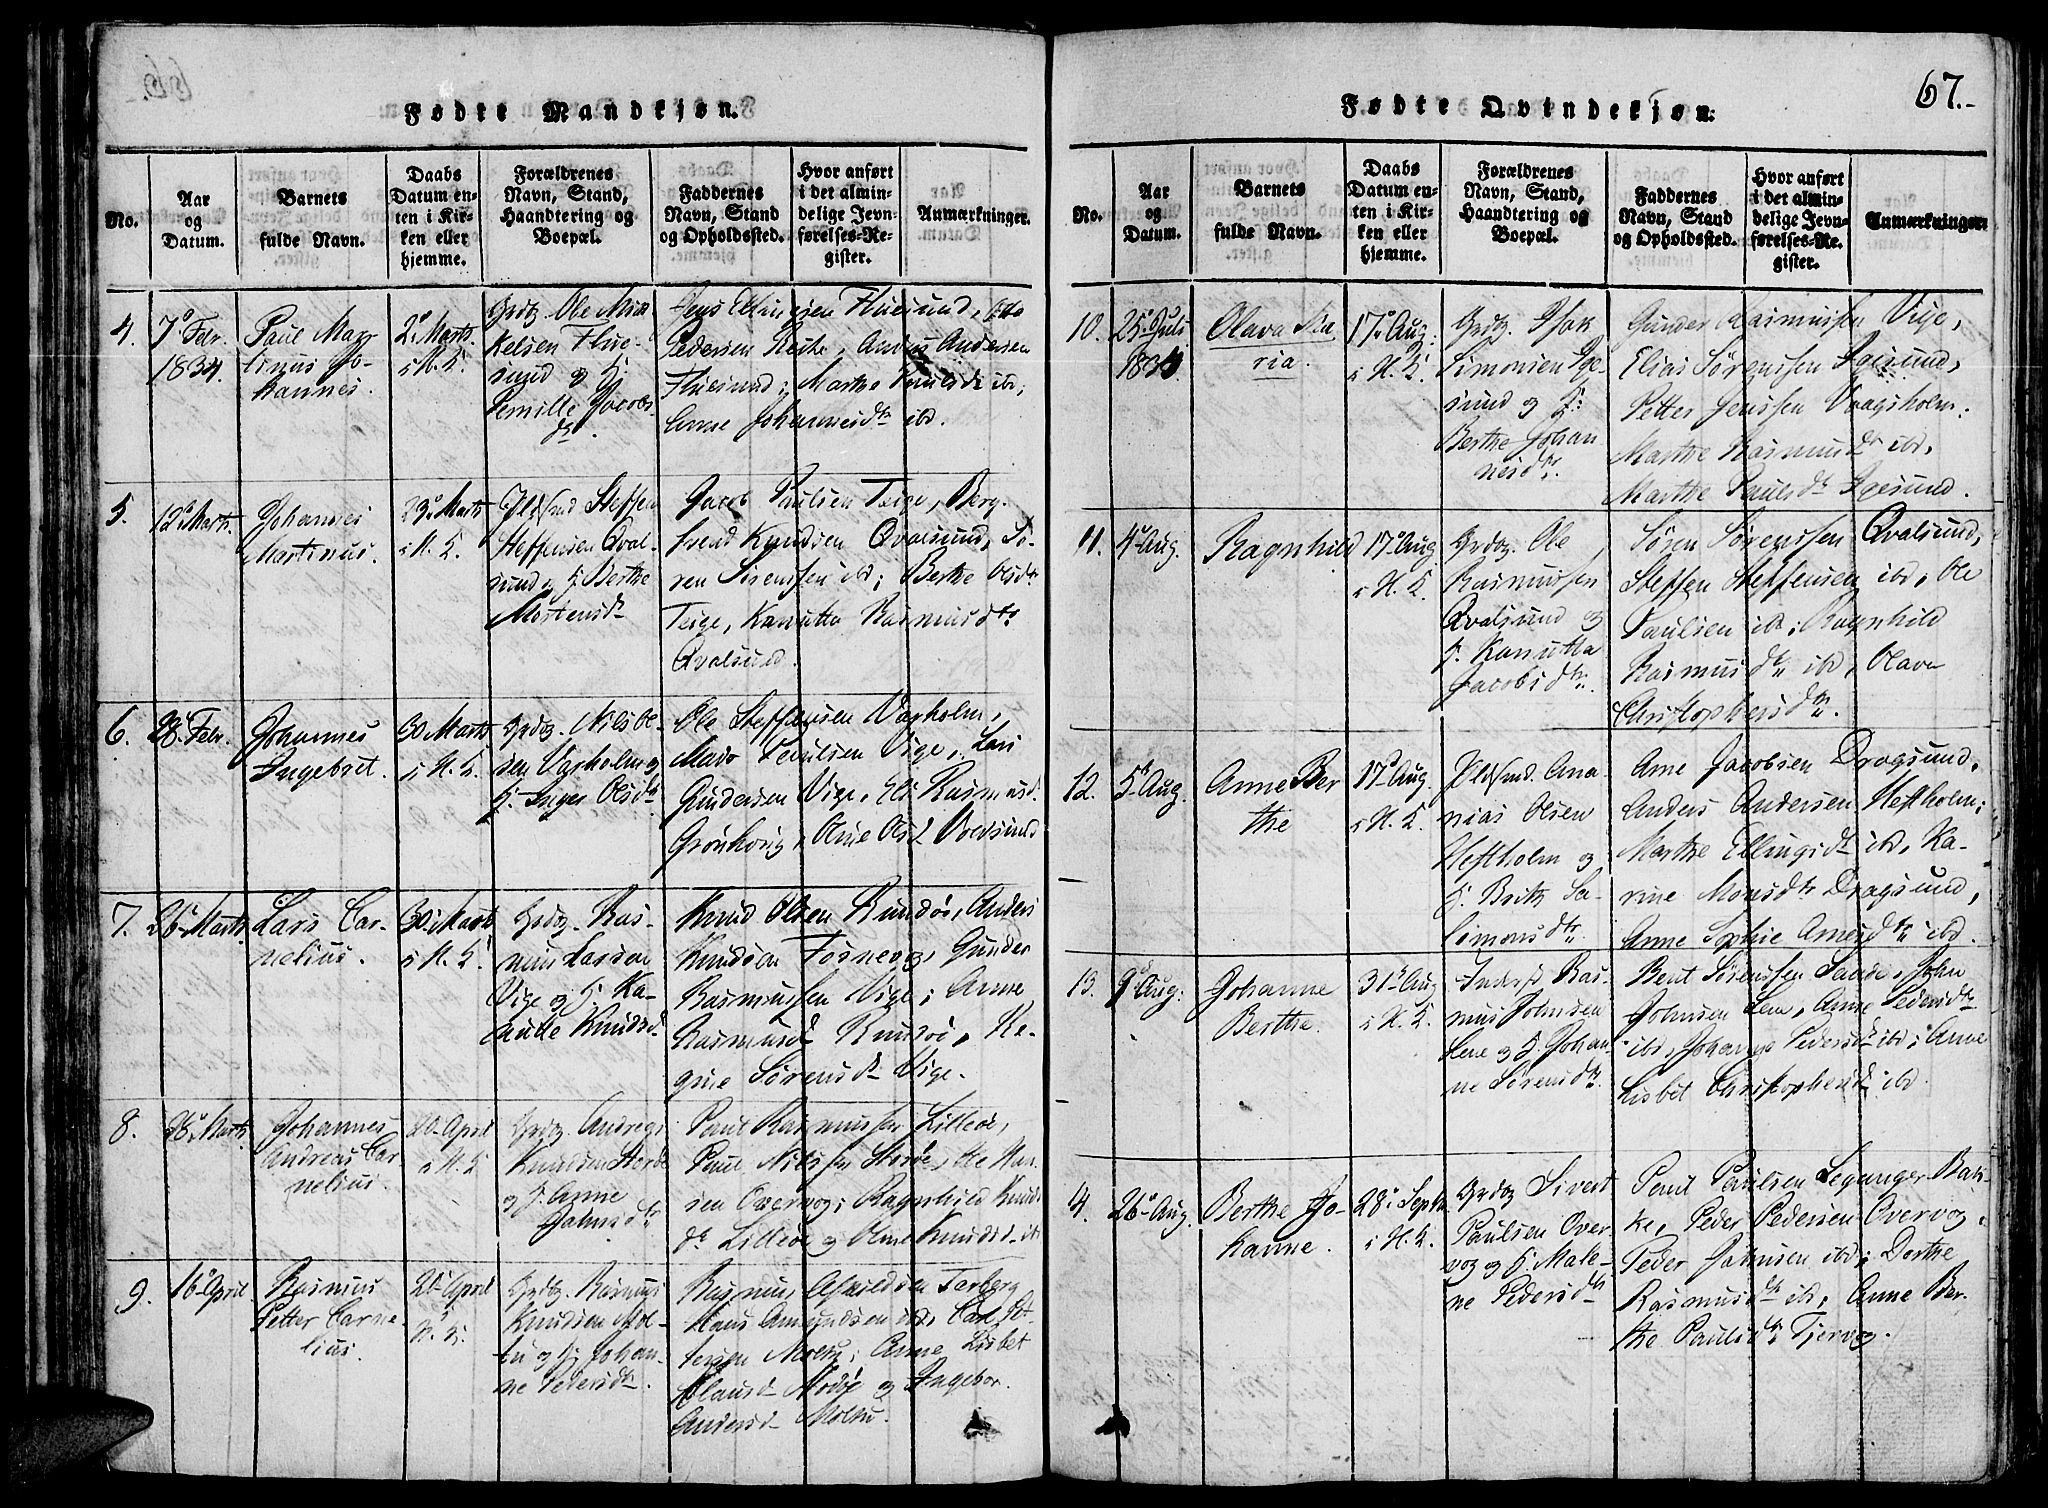 Fødte Mandkjøn.
No.
Aar og Datum.
Barnets fulde Navn.
Daabs Datum enten i Kirken eller hjemme.
Forældrenes Navn, Stand, Haandtering og Boepæl.
Faddernes Navn, Stand og Opholdssted.
Hvor anført i det almindelige Jevnførelses-Register.
Anmærkninger.
4.
7de Febr.
1834.
Paul Mar-
tinus Jo-
hannes.
2de Marts
i H. K.
Grdbg. Ole Mik-
kelsen Flue-
sund og H:
Pernille Jacobs-
dr.
Jens Ellingsen Fluesund, Ole
Pedersen Anders Andersen
Fluesund; Marthe Paulsdr ibd,
Anne Johannesdtr ibd.
5.
12te Marts.
Johannes
Martinus.
23de Marts
i H. K.
Steffen
Steffensen Qval-
sund og H. Berthe
Mortensdr
Jacob Paulsen Teige, Berg-
svend Knudsen Qvalsund, Sø-
ren Sørenssen ibd; Berthe Olsdtr
Teige, Kanutta Rasmusdtr
Qvalsund.
6.
28. Febr.
Johannes
Ingebret.
30 Marts
i H. K.
Grdbg. Nils Ol-
sen Vaxholm og
H. Inger Olsdtr
Ole Steffensen Vaxholm,
Mads Paulsen Vige, Lars
Gundersen Vige, Eli Rasmusd.
Grønhoug, Oline Olsd
7.
26de Marts.
Lars Cor-
nelius.
30te Marts
i H. K.
Grdbg. Ras-
mus Larsen
Vige og H. Ka-
nutte Knudsd.
Knud Olsen Rundøe, Anders
Knudsen Fosnevog, Gunder
Rasmussen Vige; Anne
Rasmusd Rundøe, Re-
gine Sørensd. Vige.
8.
28de Marts
Johannes
Andreas Cor-
nelius.
20. April
i H. K.
Grdbg. Andreas
Knudsen Storøe
og H. Anne
Johnsdtr
Paul Rasmussen Lilleøe,
Paul Nilssen Storøe, Ole Han-
sen Overvog; Ragnhild Knuds-
dr Lilleøe og Oline Knudsd. ibd
9.
16de April
Rasmus
Petter Corne-
lius.
20de April
H. K.
Grdbg. Rasmus
Knudsen Mol-
tu og H. Johan-
ne Pedersdr.
Rasmus Tarberg
Hans Amundsen ibd; Carl Pet-
tersen Moltu; Anne Lisbet
Clausd Modøe og Ingebor
Andersd Moltu.
Fødte Qvindekjøn.
67.-
No.
Aar og Datum.
Barnets fulde Navn.
Daabs Datum enten i Kirken eller hjemme.
Forældrenes Navn, Stand, Haandtering og Boepæl.
Faddernes Navn, Stand og Opholdssted.
Hvor anført i det almindelige Jevnførelses-Register.
Anmærkninger
10.
25de Juli
1834.
Olava Ma-
ria.
17de Aug:
i H. K.
Grdbg. Isak
Simonsen Ige-
sund og H:
Berthe Johan-
nesdtr.
Gunder Rasmussen Vige,
Elias Sørenssen Igesund,
Petter Jenssen Vaagsholm.
Marthe Rasmusdr ibd,
Marthe Paulsdr Igesund.
11.
4de Aug.
Ragnhild
17de Aug
i H. K.
Grdbg. Ole
Rasmussen
Qvalsund og
H. Kanutta
Jacobsdtr.
Søren Sørenssen Qvalsund,
Steffen Steffensen ibd, Ole
Paulsen ibd; Ragnhild
Rasmusdtr ibd, Olava
Christophersdtr.
12.
5te Aug.
Anne Ber
the
17de Aug.
i H. K.
Ana-
nias Olsen
Hestholm og
H. Brithe Sa-
limonsdtr.
Arne Jacobsen Dragsund,
Anders Andersen Hestholm;
Marthe Ellingsdr ibd, Ka-
rine Monsdtr Dragsund,
Anne Sophie Arnesdtr ibd.
13.
9de Aug:
Johanne
Berthe.
31te Aug
i H. K.
Inderst Ras-
mus Johnsen
Lene og H. Johan-
ne Sørensdtr.
Bent Sørenssen Sande, John
Johnsen Lene, Anne Pedersdtr
ibd, Johanne Pedersdr ibd; Anne
Lisbet Christophersdr ibd.
4.
26de Aug.
Berthe Jo-
hanne.
28de Septbr
i H. K.
Grdbg Sivert
Paulsen Over-
vog og H. Male-
ne Pedersdtr
Paul Paulsen Leganger Bak-
ke, Peder Pedersen Overvog,
Peder Johnsen ibd; Dorthe
Rasmusdtr ibd, Anne Ber-
the Paulsdr Tjervog.